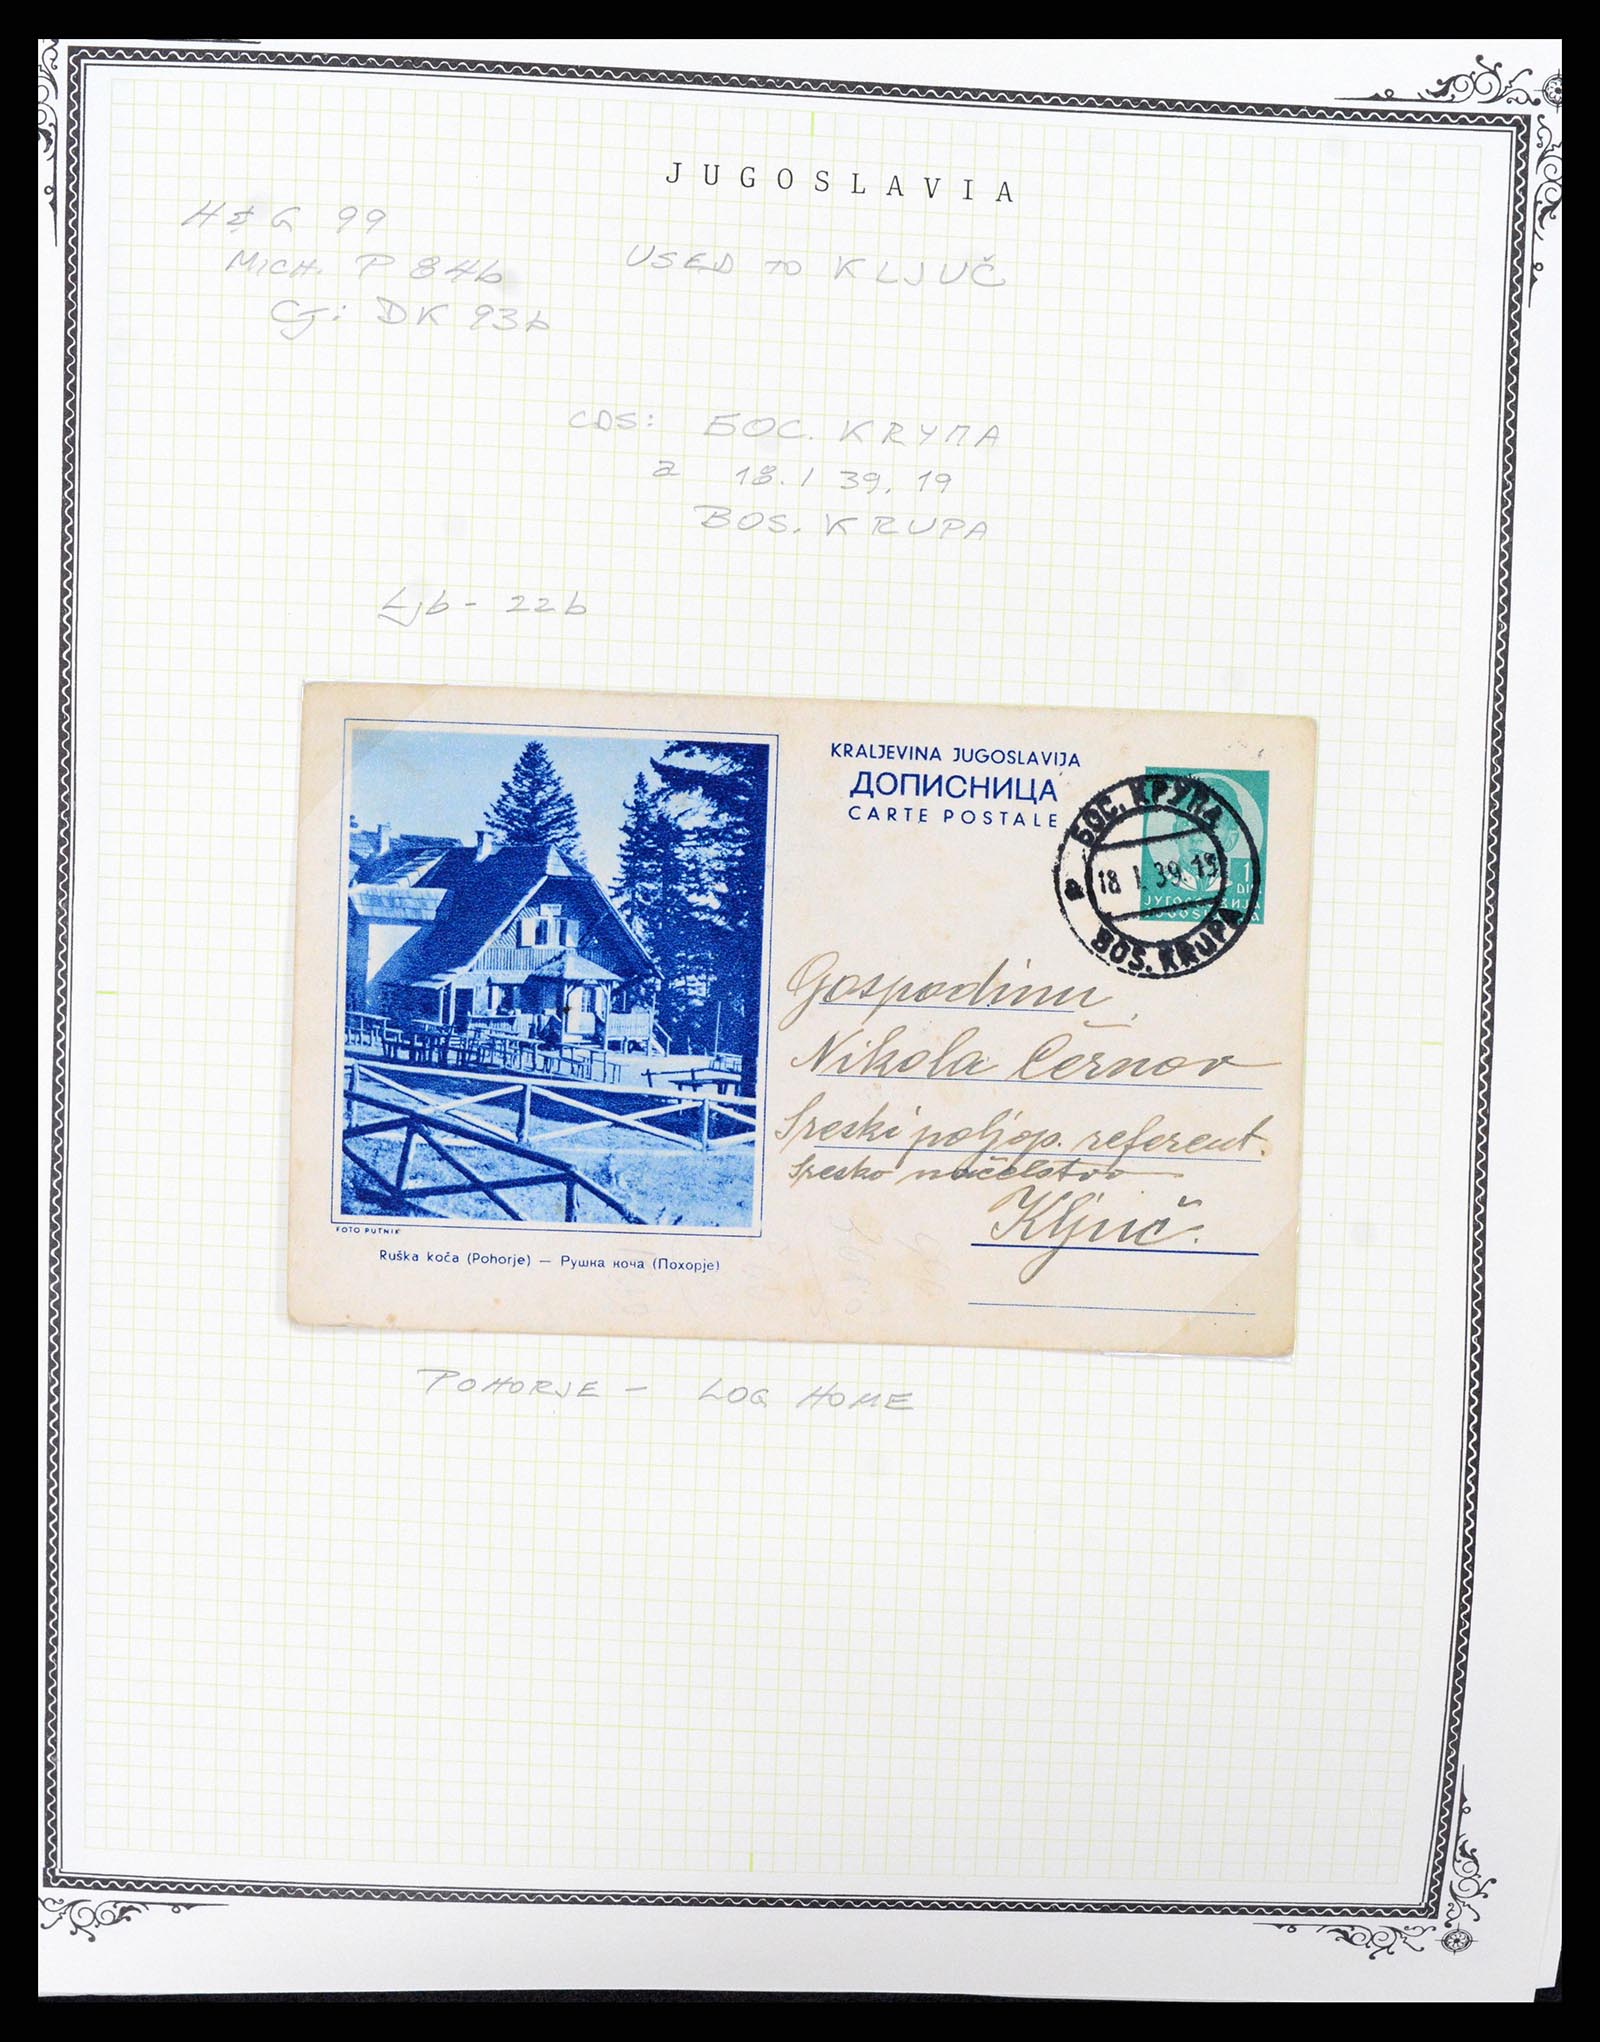 JUGOSLAVIA
H & G 99
MICH. P 84b
Cj: DK 93b
USED TO KLJUČ
CDS: БОС. KRУПА
a 18. I 39. 19
BOS. KRUPA
Ljb - 22b
KRALJEVINA JUGOSLAVIJA
ДОПИСНИЦА
CARTE POSTALE
БОС. КРУПА
18 I. 39. 15
a
BOS. KRUPA
1
DIN
ЈУГОСЛАВИЈА
JUGOSLAVIJA
Gospodinu,
Nikola Černov
Sreski poljop. referent.
Sresko načelstvo
Ključ.
FOTO PUTNIK
Ruška koča (Pohorje) — Рушка коча (Похорје)
POHORJE - LOG HOME